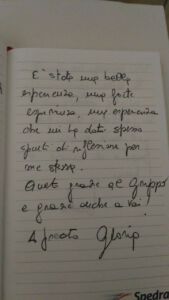 E' stata una bella
esperienza, una forte
esperienza, una esperienza
che mi ha dato spesso
spunti di riflessione per
me stessa.
grazie al Gruppo
e grazie anche a voi!
A presto Gloria
Spedra